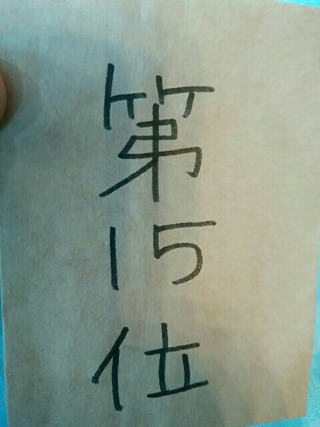 第15位